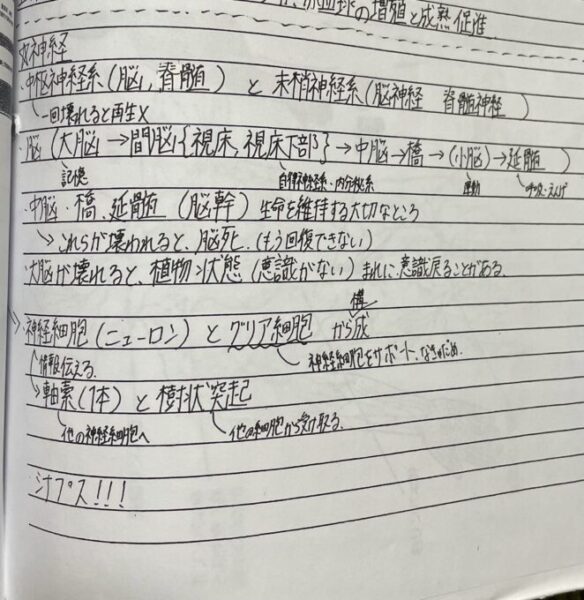 血球の増殖と成熟促進
神経
・中枢神経系(脳, 脊髄)と末梢神経系(脳神経 脊髄神経)
一回壊れると再生×
・脳(大脳→間脳{視床, 視床下部}→中脳→橋→(小脳)→延髄)
記憶 自律神経系・内分泌系 運動 呼吸・えんげ
・中脳・橋、延髄(脳幹)生命を維持する大切なところ
→これらが壊われると、脳死.(もう回復できない)
・大脳が壊れると、植物状態(意識がない)まれに、意識戻ることがある.
構
神経細胞(ニューロン)とグリア細胞から成
情報伝える. 神経細胞をサポート、
→軸索(1本)と樹状突起
他の神経細胞へ 他の細胞から受け取る.
シナプス!!!